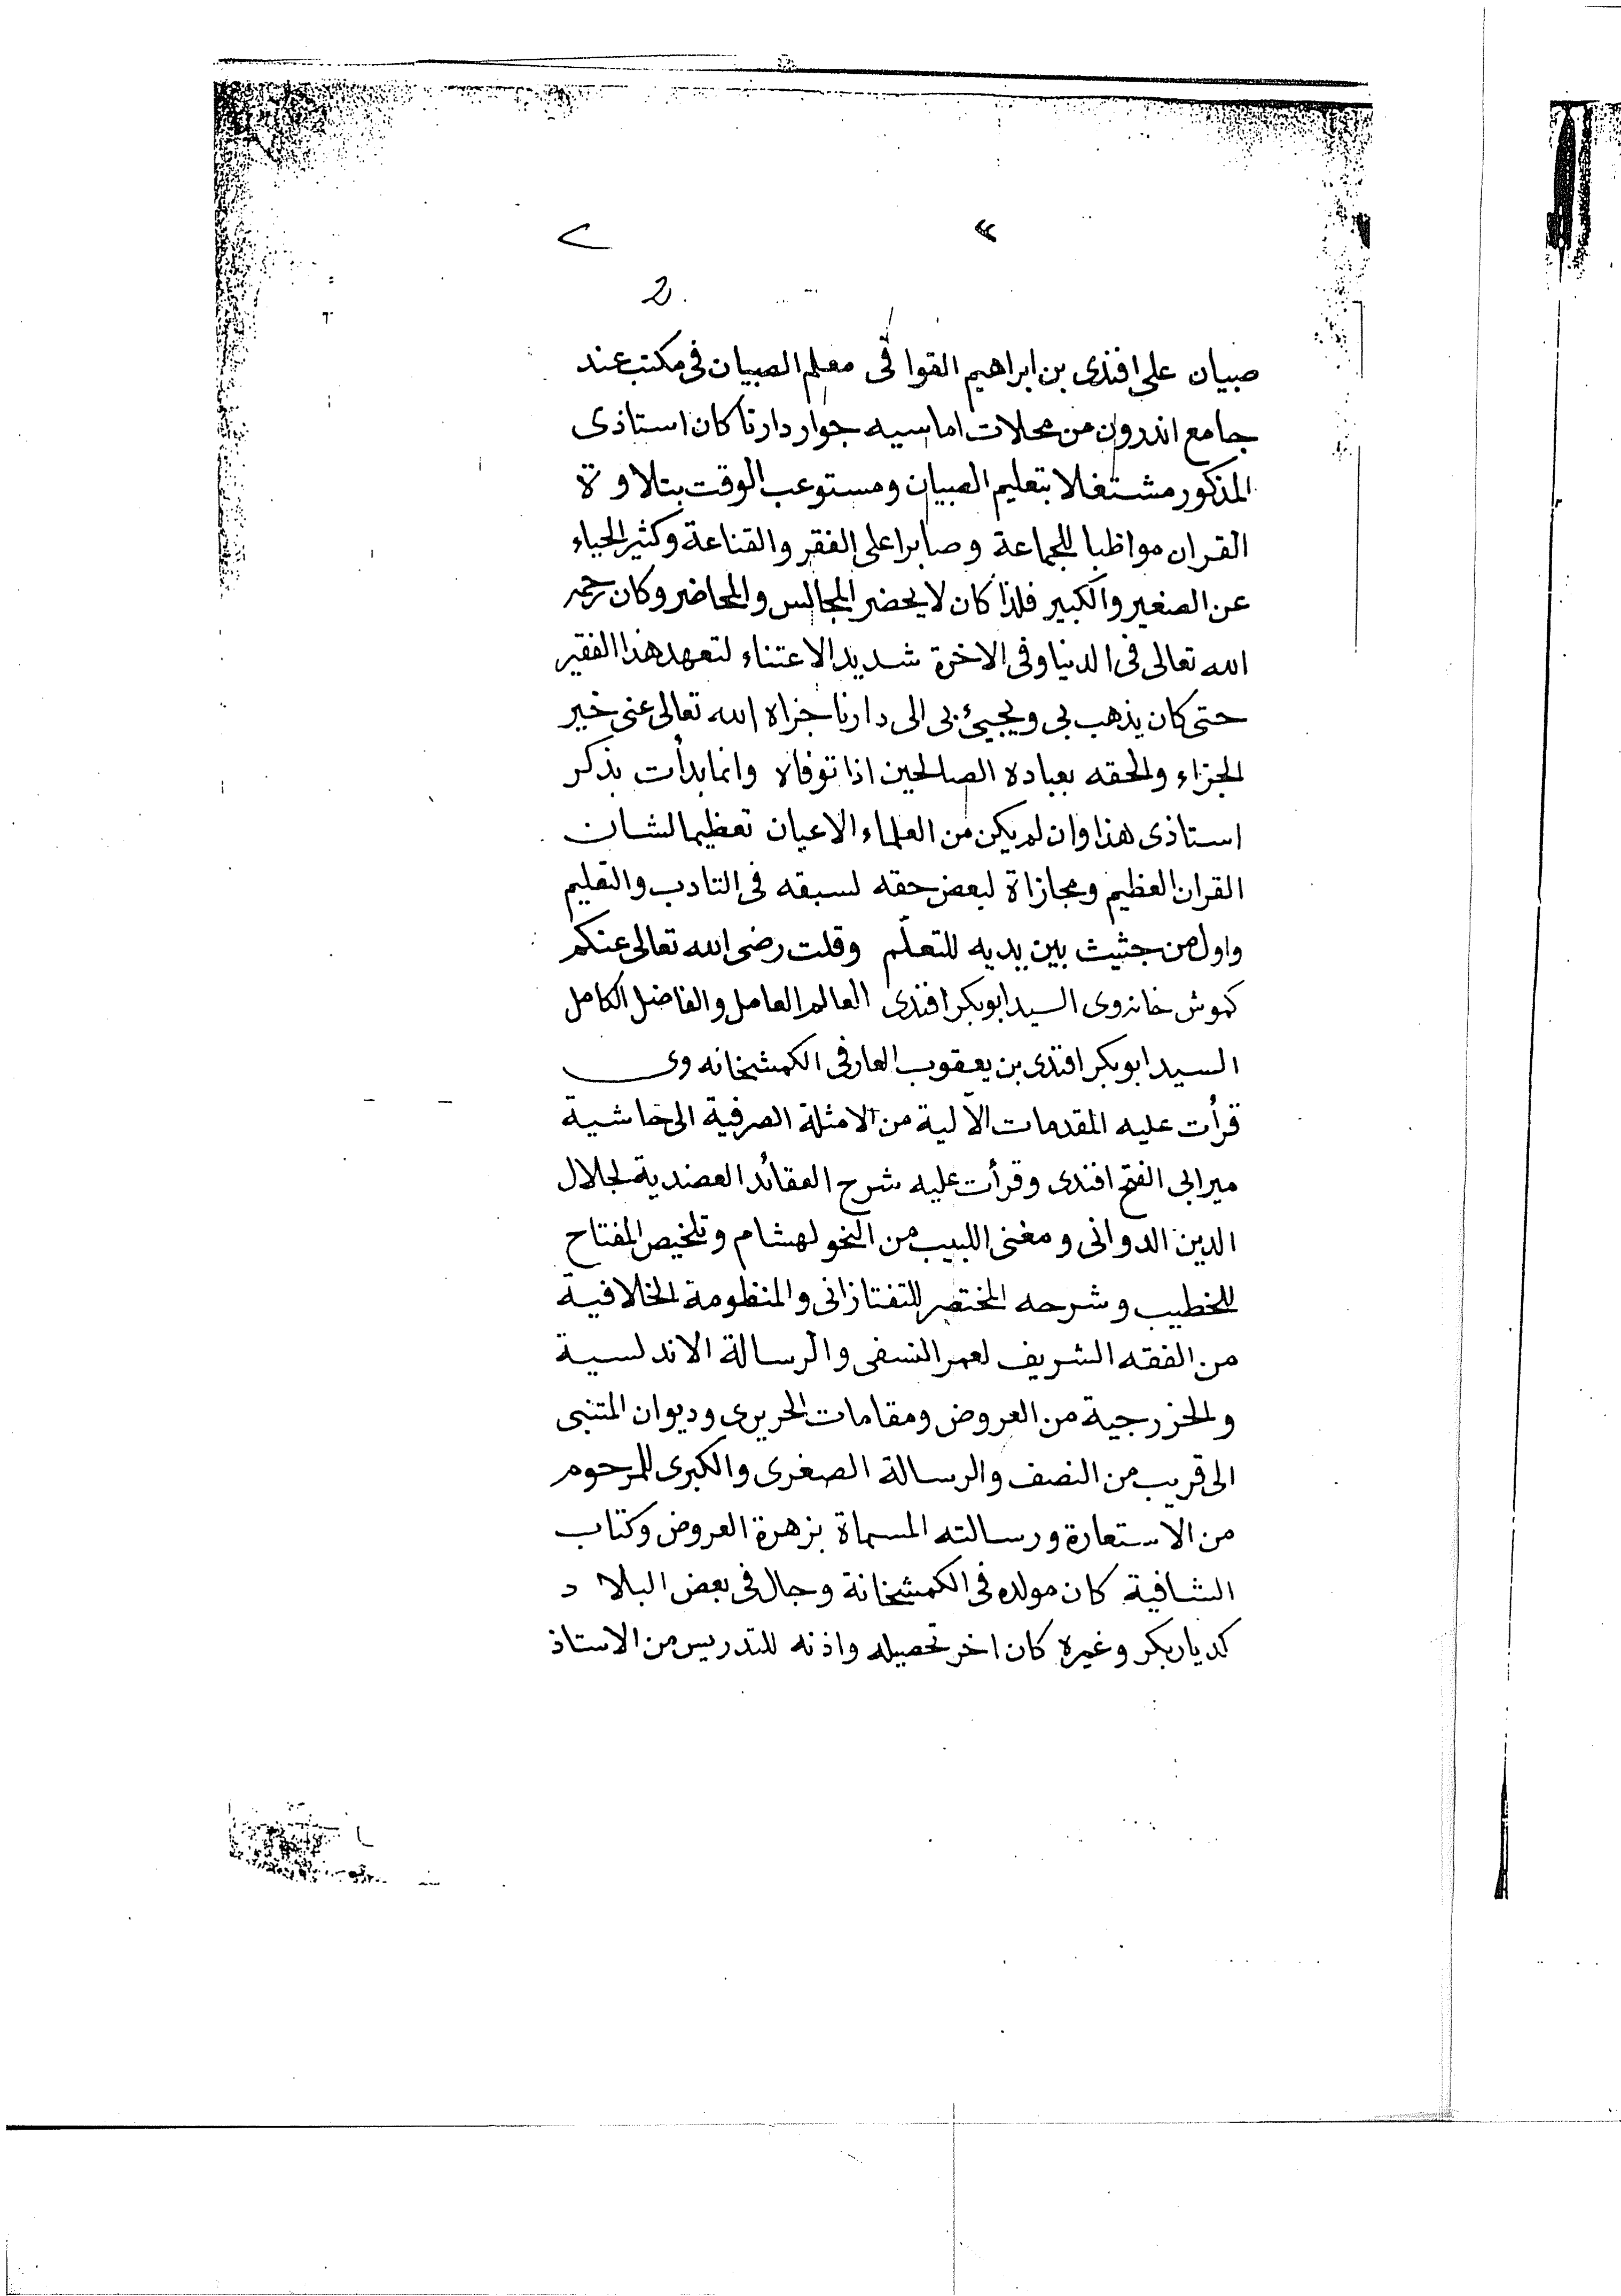 2
صبيان على افندى بن ابراهيم القوافى معلم الصبيان فى مكتب عند
جامع اندرون من محلات اماسيه جوار دارنا كان استاذى
المذكور مشتغلا بتعليم الصبيان ومستوعب الوقت بتلاوة
القران مواظبا للجماعة وصابرا على الفقر والقناعة وكثير الحياء
عن الصغير والكبير فلذا كان لا يحضر المجالس والمحاضر وكان رحمه
الله تعالى فى الدنيا وفى الاخرة شديد الاعتناء لتعهد هذا الفقير
حتى كان يذهب بى ويجيئ بى الى دارنا جزاه الله تعالى عنى خير
الجزاء والحقه بعباده الصالحين اذا توفاه وانما بدأت بذكر
استاذى هذا وان لم يكن من العلماء الاعيان تعظيما لشان
القران العظيم ومجازاة لبعض حقه لسبقه فى التادب والتعليم
واول من جثيث بين يديه للتعلّم وقلت رضى الله تعالى عنكم
كموش خانه وى السيد ابوبكر افندى العالم العامل والفاضل الكامل
السيد ابوبكر افندى بن يعقوب العارفى الكمشخانه وى
قرأت عليه المقدمات الآلية من الامثلة الصرفية الى حاشية
مير ابى الفتح افندى وقرأت عليه شرح العقائد العضدية لجلال
الدين الدوانى ومغنى اللبيب من النحو لهشام وتلخيص المفتاح
للخطيب وشرحه المختصر للتفتازانى والمنظومة الخلافية
من الفقه الشريف لعمر النسفى والرسالة الاندلسية
والخزرجية من العروض ومقامات الحريرى وديوان المتنبى
الى قريب من النصف والرسالة الصغرى والكبرى للمرحوم
من الاستعارة ورسالته المسماة بزهرة العروض وكتاب
الشافية كان مولده فى الكمشخانة وجال فى بعض البلاد
كديار بكر وغيره كان اخر تحصيله واذنه للتدريس من الاستاذ